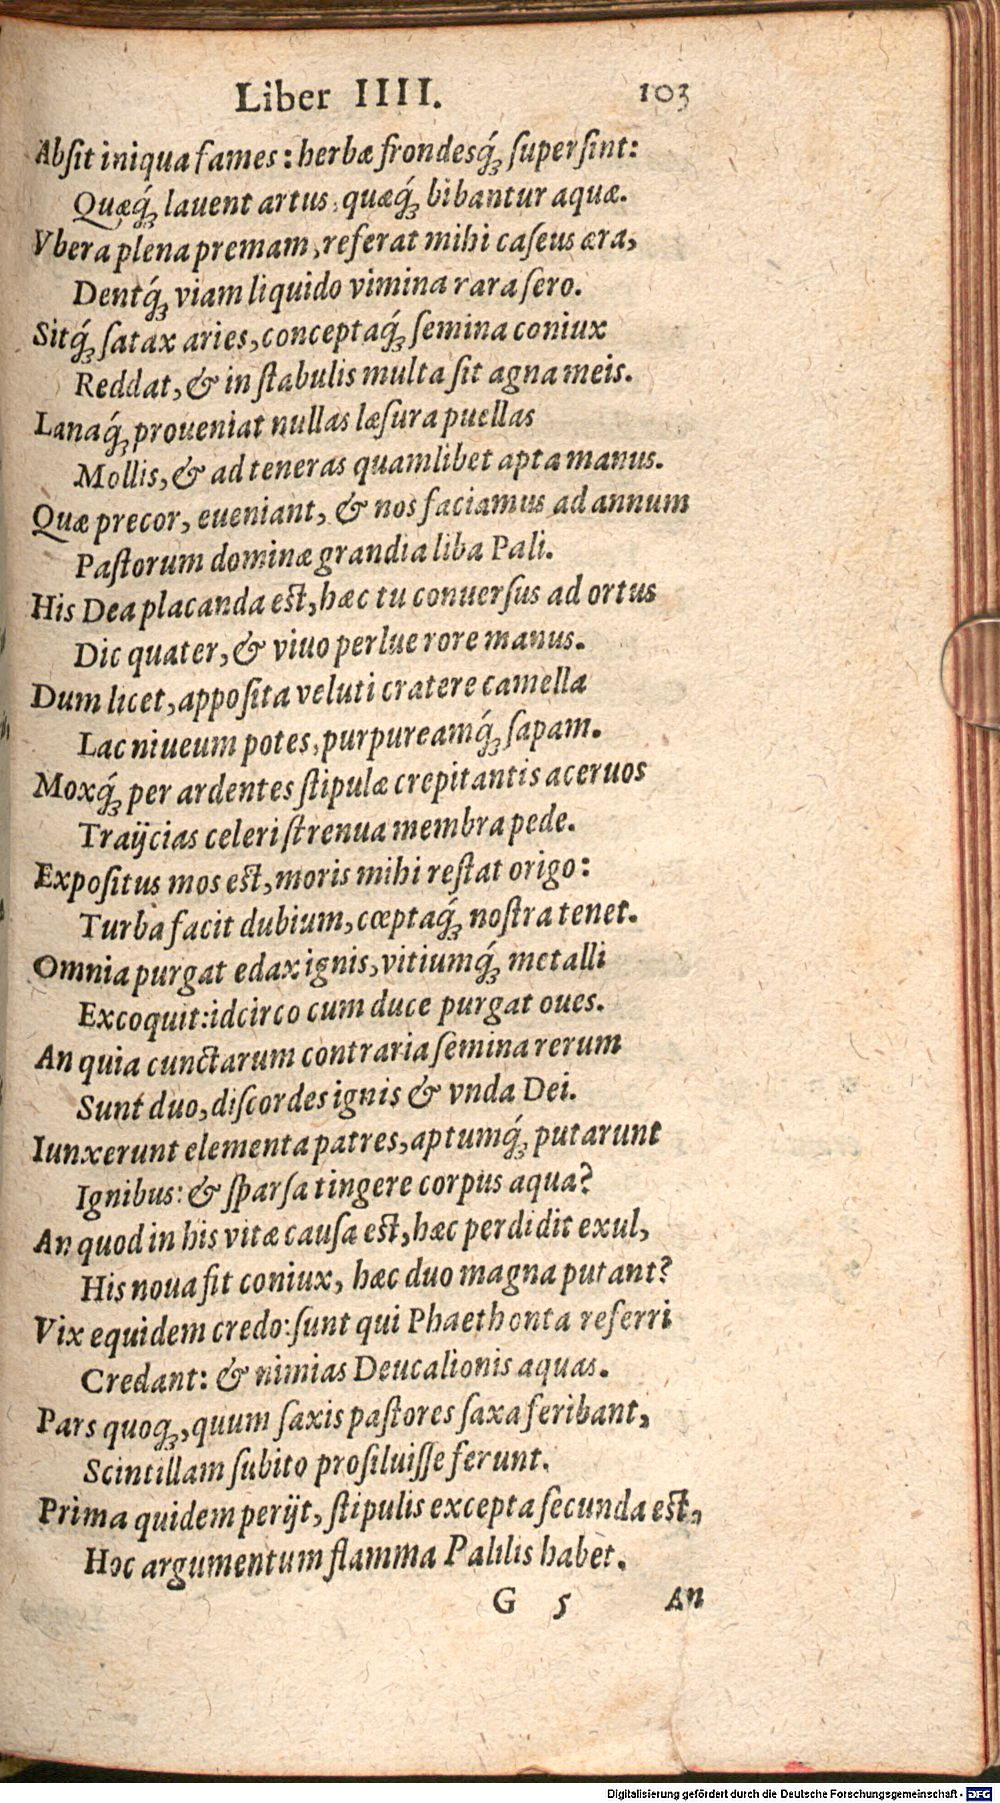 Liber IIII. 103
Abſit iniqua fames: herbæ frondesq́ꝫ ſuperſint:
Quæq́ꝫ lauent artus, quæq́ꝫ bibantur aquæ.
Vbera plena premam, referat mihi caſeus æra,
Dentq́ꝫ viam liquido vimina rara ſero.
Sitq́ꝫ ſatax aries, conceptaq́ꝫ ſemina coniux
Reddat, & in ſtabulis multa ſit agna meis.
Lanaq́ꝫ proueniat nullas læſura puellas
Mollis, & ad teneras quamlibet apta manus.
Quæ precor, eueniant, & nos faciamus ad annum
Paſtorum dominæ grandia liba Pali.
His Dea placanda eſt, hæc tu conuerſus ad ortus
Dic quater, & viuo perlue rore manus.
Dum licet, appoſita veluti cratere camella
Lac niueum potes, purpureamq́ꝫ ſapam.
Moxq́ꝫ per ardentes ſtipulæ crepitantis aceruos
Traijcias celeri ſtrenua membra pede.
Expoſitus mos eſt, moris mihi reſtat origo:
Turba facit dubium, cœptaq́ꝫ noſtra tenet.
Omnia purgat edax ignis, vitiumq́ꝫ metalli
Excoquit: idcirco cum duce purgat oues.
An quia cunctarum contraria ſemina rerum
Sunt duo, diſcordes ignis & vnda Dei.
Iunxerunt elementa patres, aptumq́ꝫ putarunt
Ignibus: & ſparſa tingere corpus aqua?
An quod in his vitæ cauſa eſt, hæc perdidit exul,
His noua fit coniux, hæc duo magna putant?
Vix equidem credo: ſunt qui Phaethonta referri
Credant: & nimias Deucalionis aquas.
Pars quoqꝫ, quum ſaxis paſtores ſaxa feribant,
Scintillam ſubito proſiluiſſe ferunt.
Prima quidem perijt, ſtipulis excepta ſecunda eſt,
Hoc argumentum flamma Palilis habet.
G 5 An
Digitalisierung gefördert durch die Deutsche Forschungsgemeinschaft - DFG